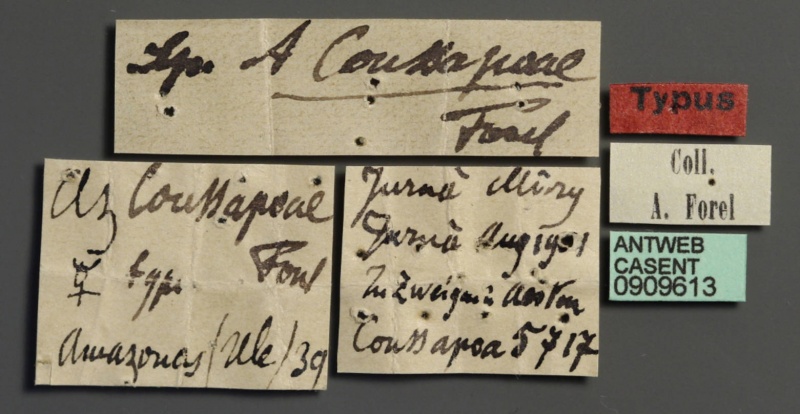 Typ. A Coussapoae
Forel
Az Coussapoae
☿ typ. Forel
Amazonas / Ule / 39
Juruà Mûry
Juruà Aug 1901
In Zweigen u Aesten
Coussapoa 5717
Typus
Coll.
A. Forel
ANTWEB
CASENT
0909613